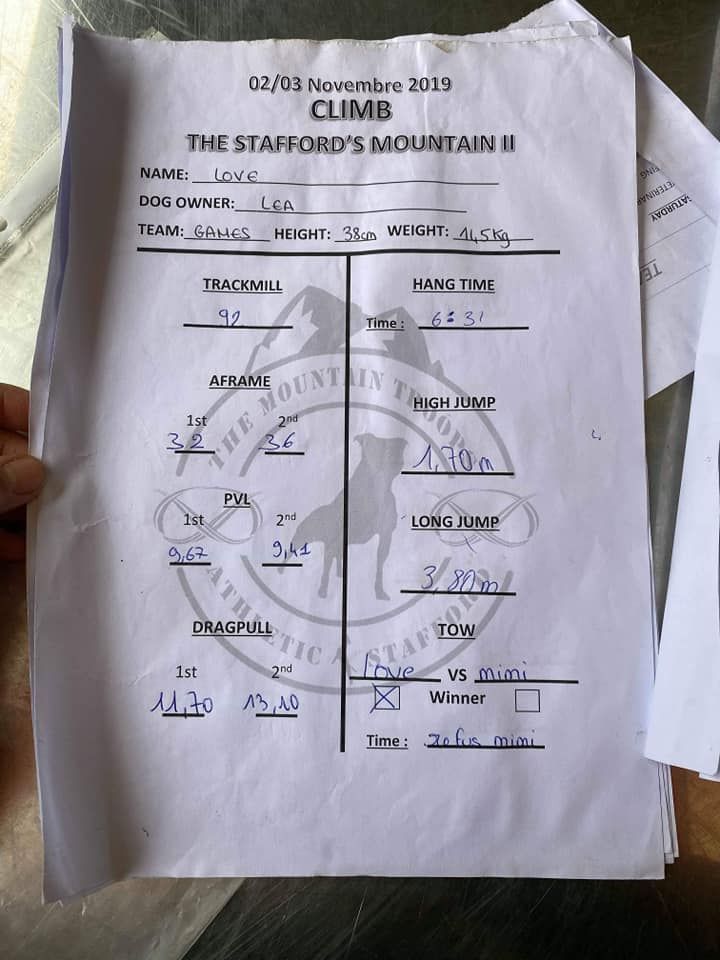 02/03 Novembre 2019
CLIMB
THE STAFFORD'S MOUNTAIN II
NAME: LOVE
DOG OWNER: LEA
TEAM: GAMES HEIGHT: 38cm WEIGHT: 14,5Kg
TRACKMILL
92
AFRAME
1st 2nd
32 36
PVL
1st 2nd
9,67 9,41
DRAGPULL
1st 2nd
11,70 13,10
HANG TIME
Time : 6:31
HIGH JUMP
1,70m
LONG JUMP
3,80m
TOW
love VS mimi
Winner
Time : refus mimi
THE MOUNTAIN TROOPS
ATHLETIC STAFFORD
SATURDAY